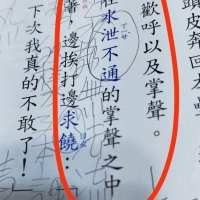 頭皮奔回木
歡呼以及掌聲。
在水泄不通的掌聲之中
著，邊挨打邊求饒…
下次我真的不敢了！